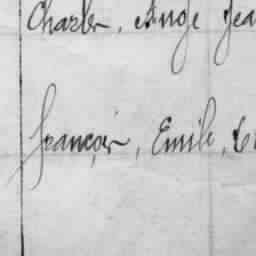 Charles, Ange Jea
François, Emile, E